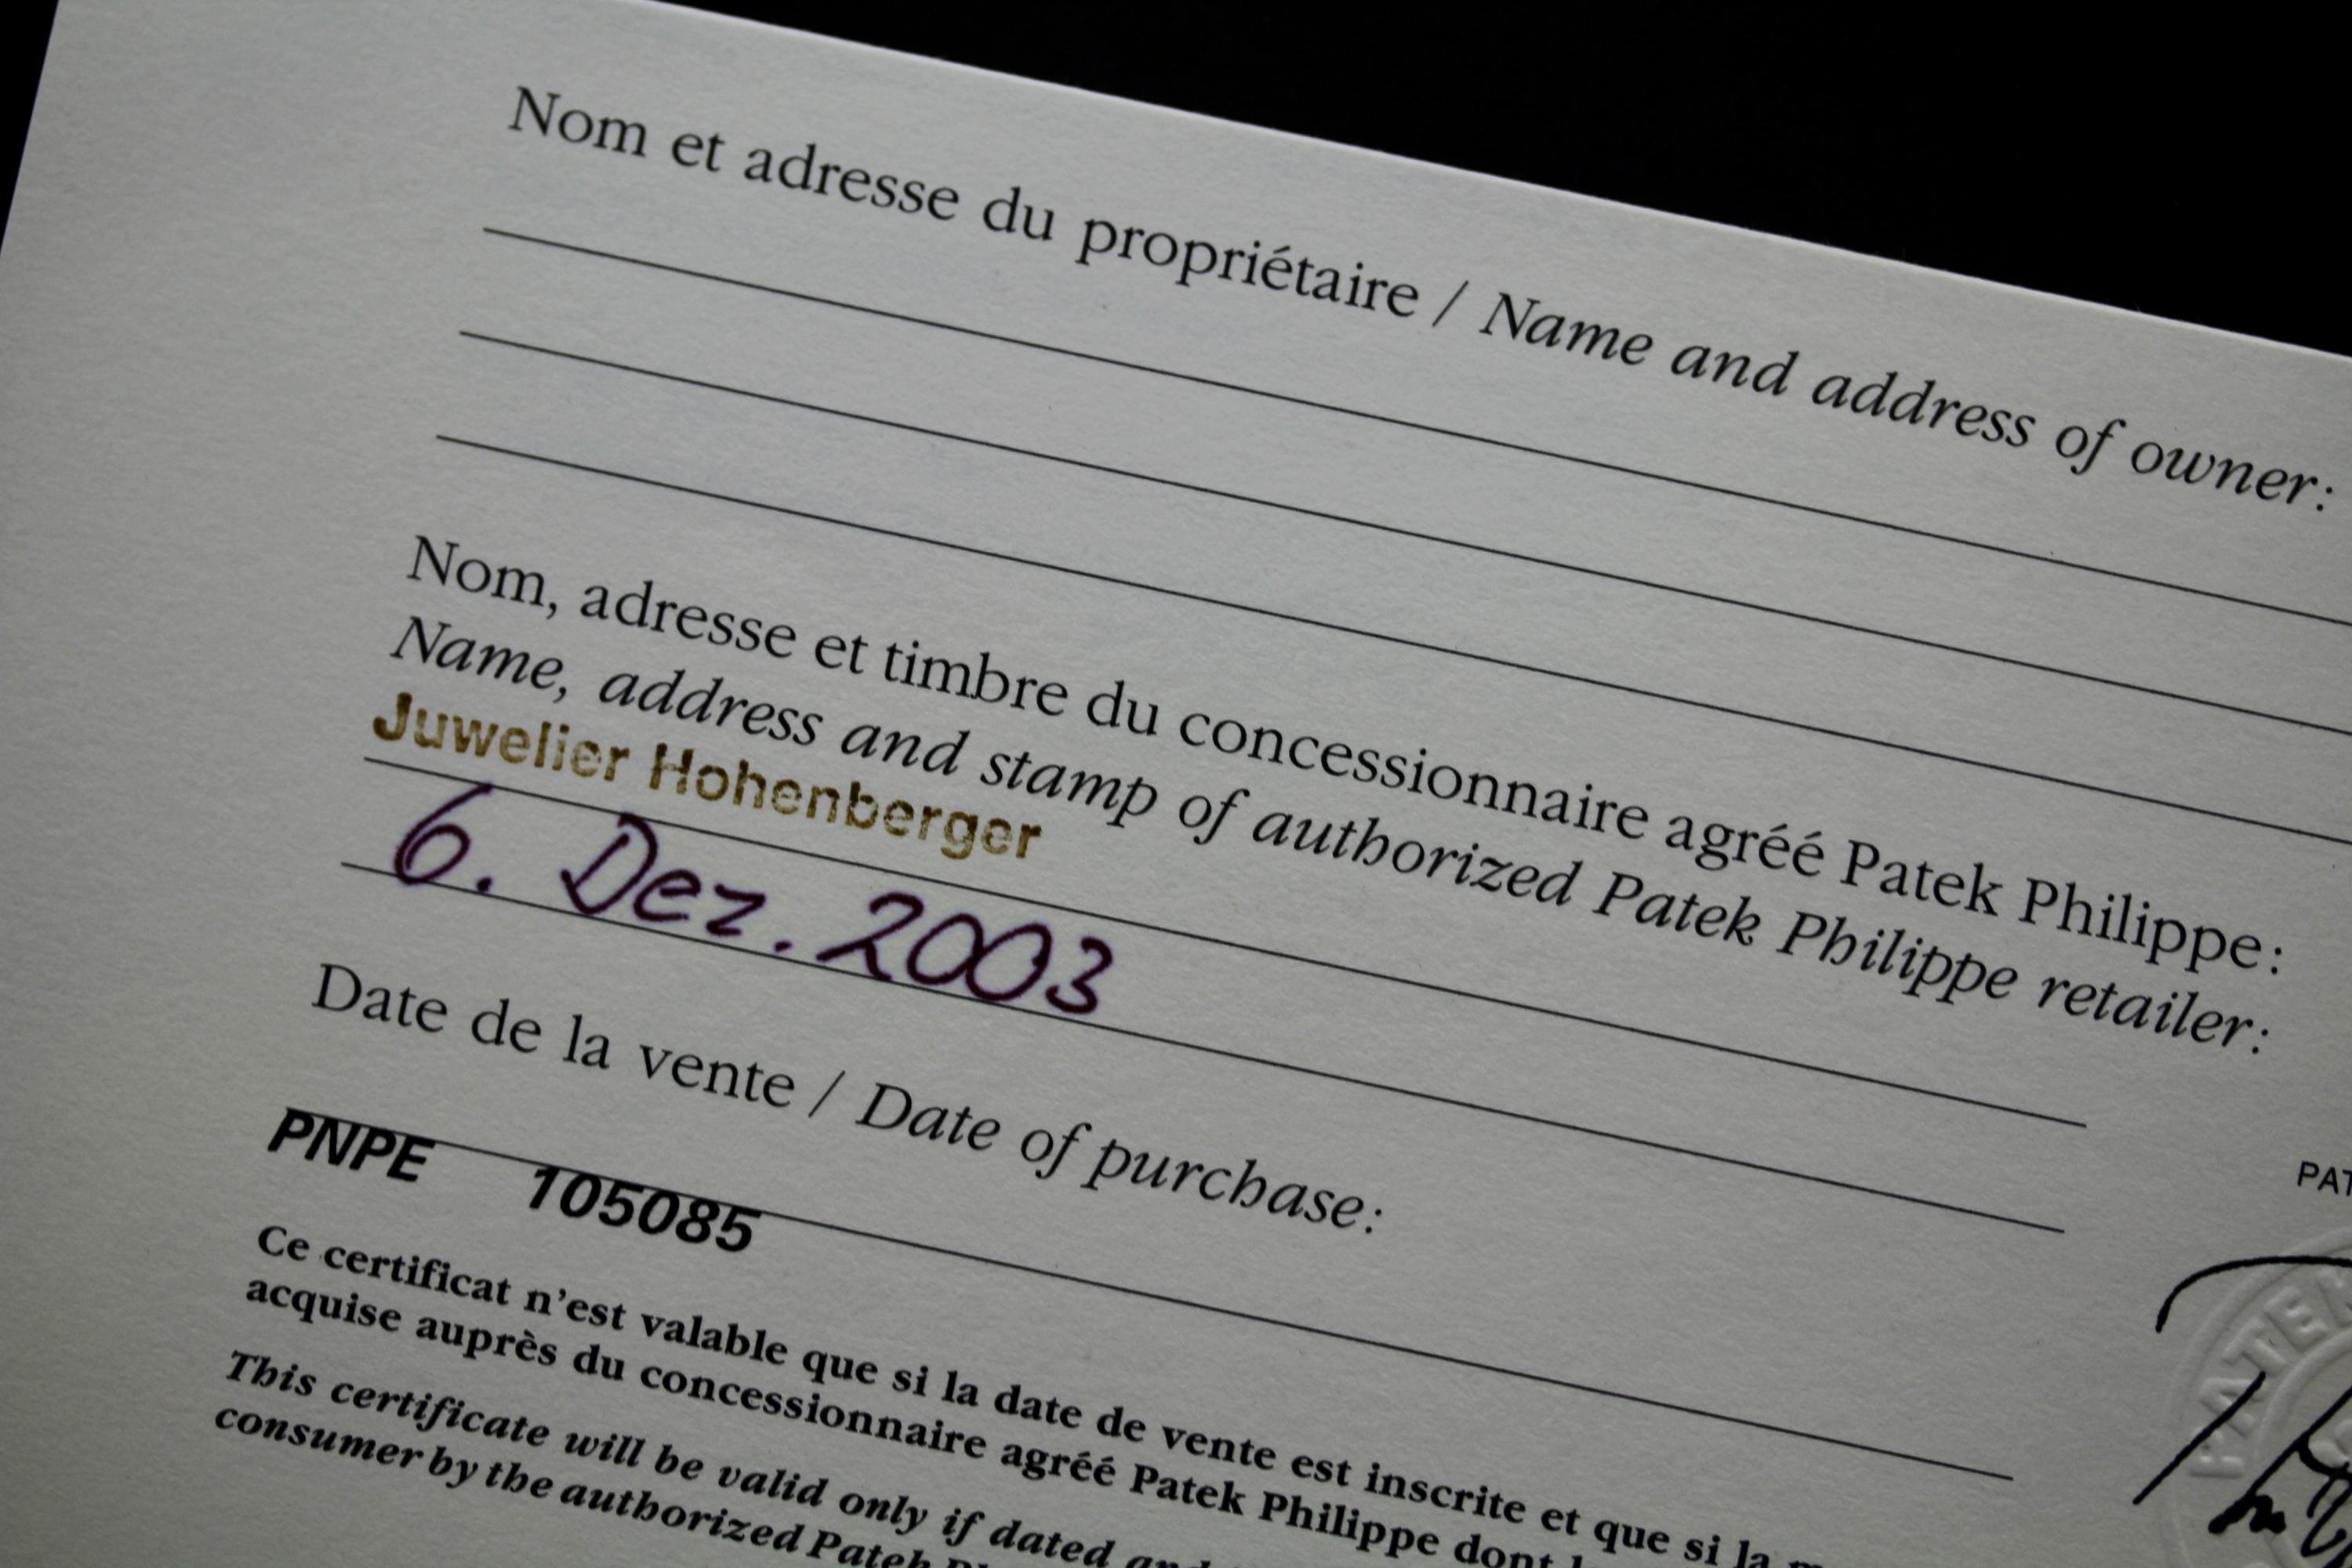 Nom et adresse du propriétaire / Name and address of owner:
Nom, adresse et timbre du concessionnaire agréé Patek Philippe:
Name, address and stamp of authorized Patek Philippe retailer:
Juwelier Hohenberger
6. Dez. 2003
Date de la vente / Date of purchase:
PNPE 105085
PAT
PATE
Ce certificat n'est valable que si la date de vente est inscrite et que si la
acquise auprès du concessionnaire agréé Patek Philippe dont
This certificate will be valid only if dated and
consumer by the authorized Patek